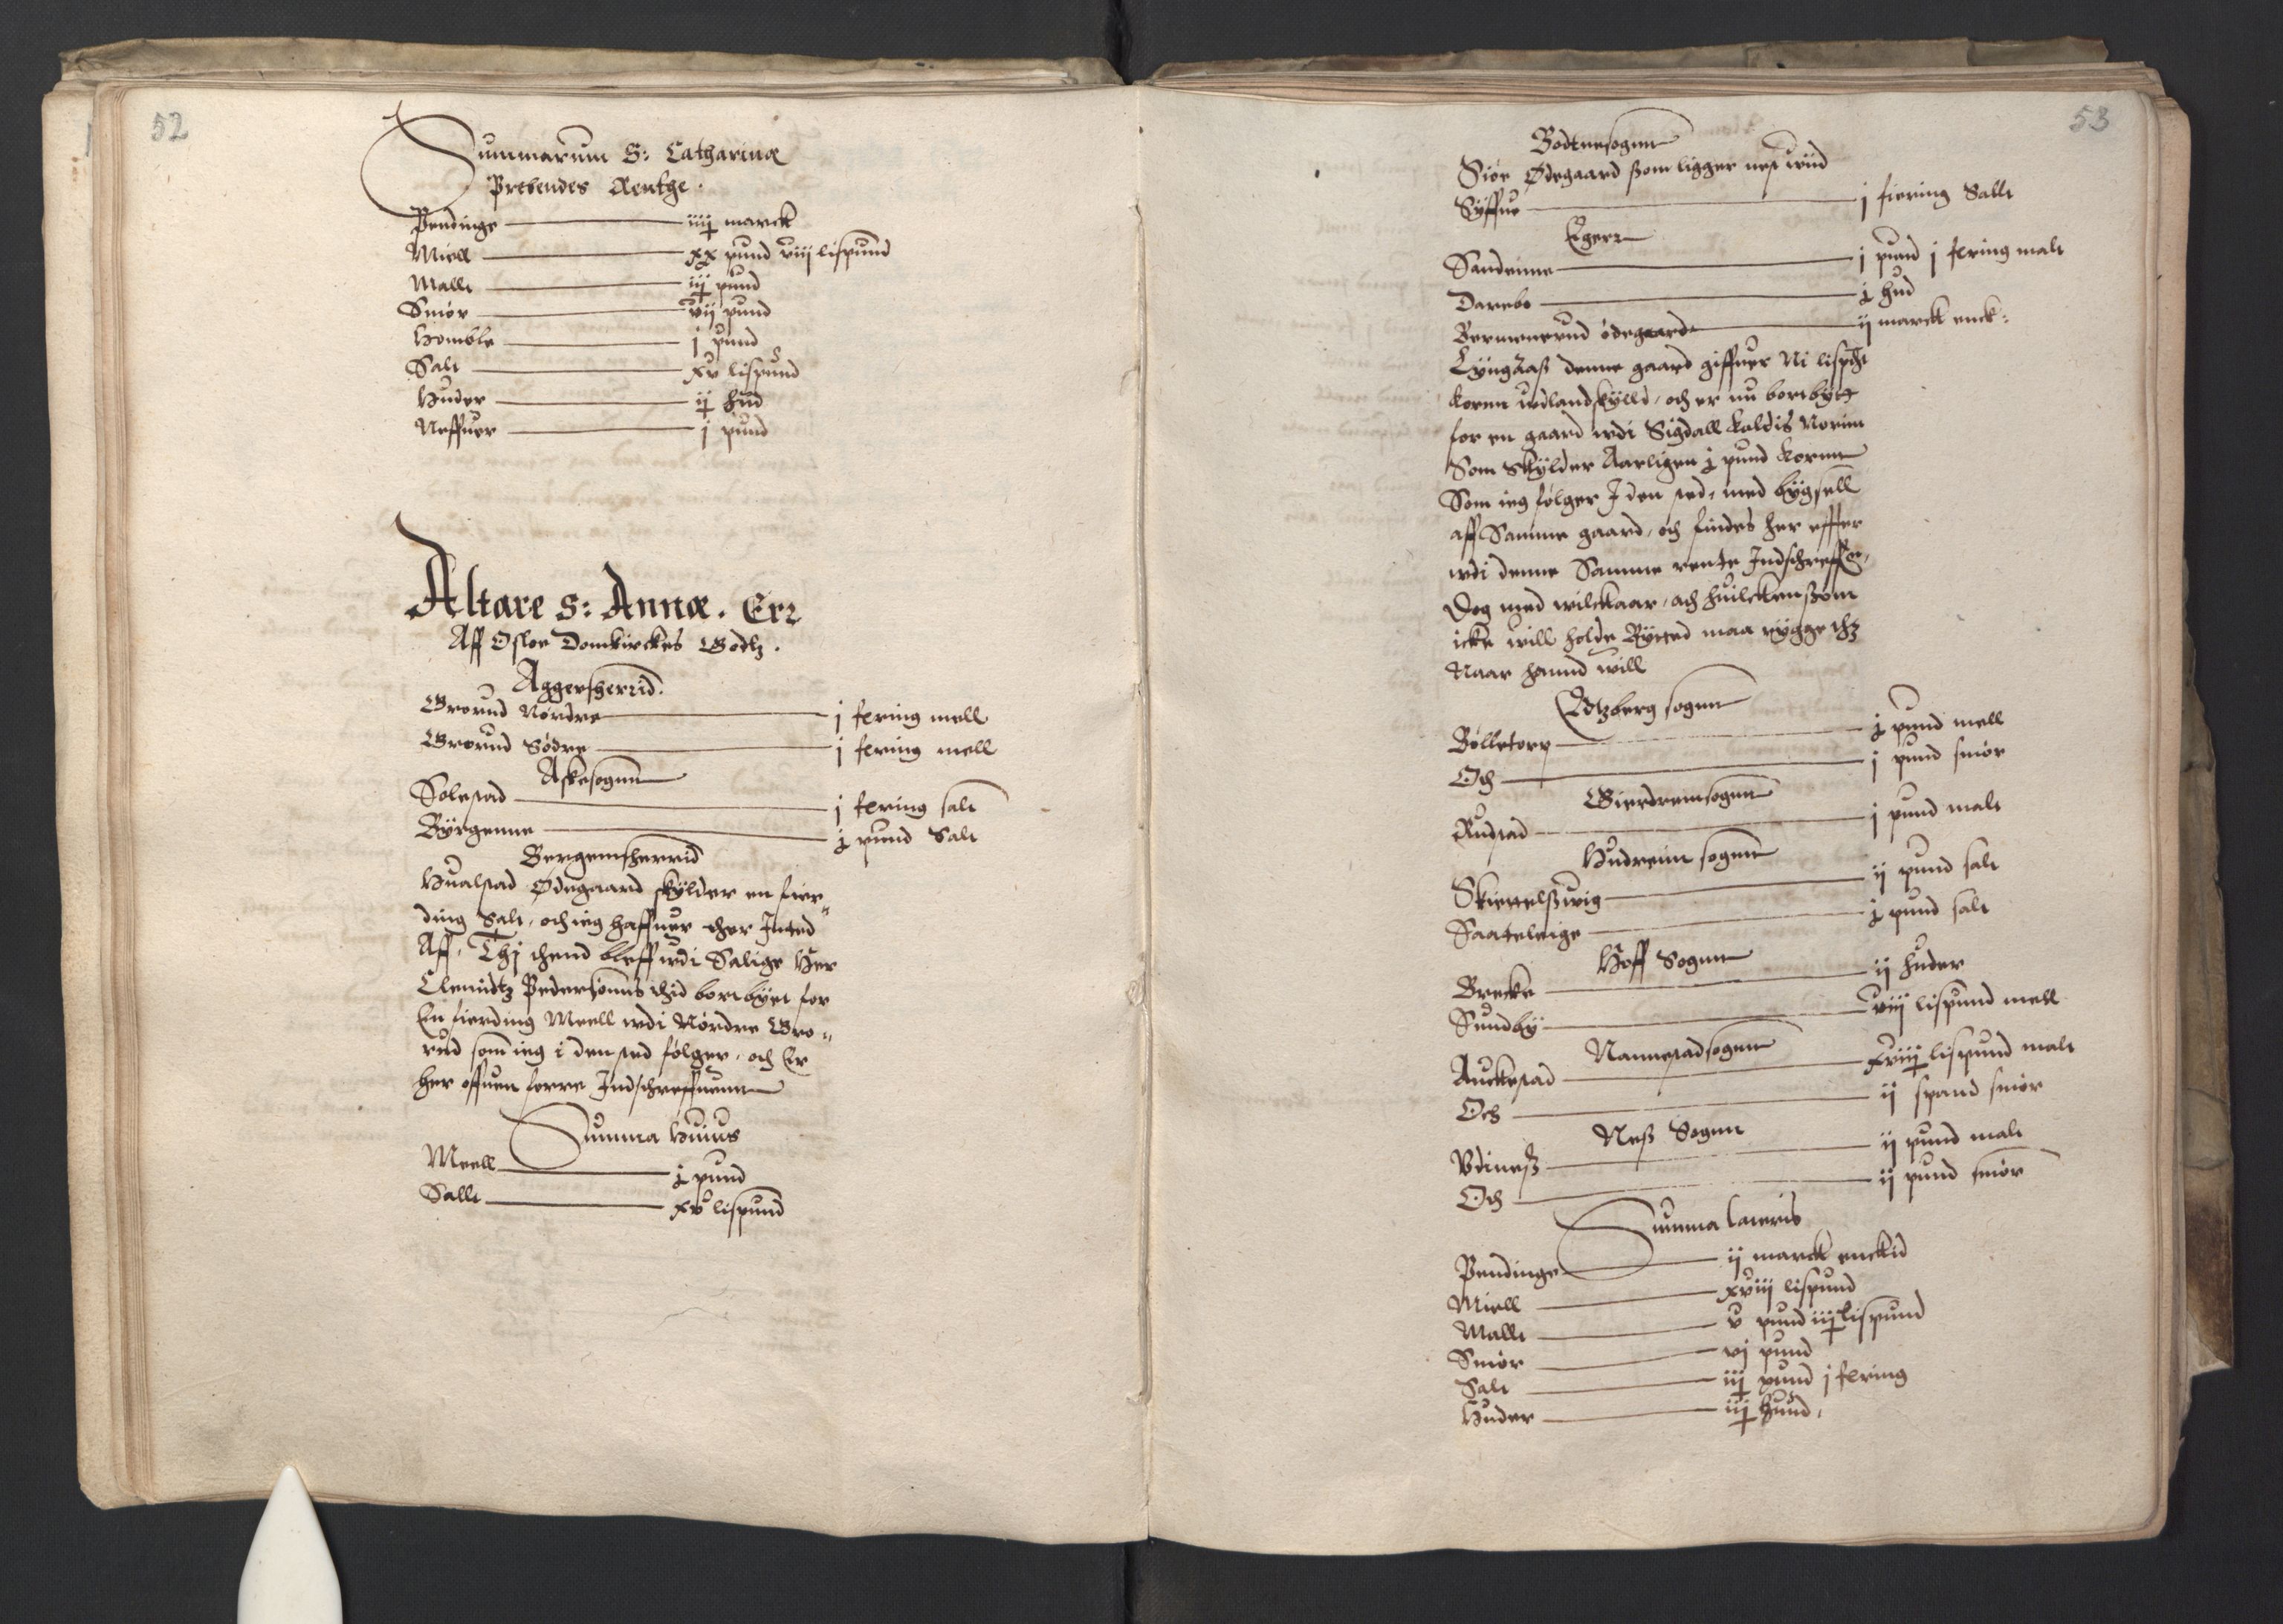 52
Summarum S: Catharinæ
Prebendes Renthe.
Pendinge — iiij marck
Miell — xx pund viij lispund
Mallt — iij pund
Smør — vij pund
Homble — j pund
Salt — xv lispund
Huder — ij hud
Neffuer — j pund
Altare S: Annæ. Err
Aff Osloe Domkirckes Godtz.
Aggersherrid.
Grorud Nørdre — j fering mell
Grorud Sødre — j fering mell
Askesognn
Solestad — j fering salt
Byrgenne — j pund Salt
Bergemsherrid
Hualstad Ødegaard skylder en fier-
ding Salt, och ieg haffuer ther Inted
Aff, Thj thend bleff wdi Salige Her
Clemidtz Pedersønns thid bortbyt for
En fierding Meell wdi Nørdre Gro-
rud som ieg i den sted følger, och Er
her offuen forre Indschreffuenn
Summa huius
Meell — j pund
Sallt — xv lispund
53
Bodtnesognn
Siøe Ødegaard som ligger nest wiid
Ryffue — j fiering Sallt
Egerr
Sandeinne — j pund j fering malt
Darebo — j hud
Bermenerud ødegaard — ij marck enck:
Lyngaas denne gaard giffuer Ni lispd
korn udlandskylld, och er nu bortbytt
for en gaard wdi Sigdall kaldis Norim
Som skylder Aarligen j pund kornn
Som ieg følger I den sted, med bygsell
aff Samme gaard, och findes her effter
wdi denne Samme rente Indschreffuen,
Dog med wilckaar, at huilcken som
icke will holde Bytted maa rygge thz
Naar hannd will
Edtzberg sognn
Bølletorp — j pund mell
Och — j pund smør
Gierdremsognn
Rudstad — j pund malt
Hudreim sognn
Skiettelsswig — ij pund salt
Saateleige — j pund salt
Hoff Sognn
Brecke — ij huder
Sundby — viij lispund mell
Nannestadsognn
Auckestad — xviij lispund malt
Och — ij spand smør
Ness Sognn
Vdiness — ij pund malt
Och — ij pund smør
Summa lateris
Pendinge — ij marck enckid
Miell — xviij lispund
Mallt — v pund iij lispund
Smør — vj pund
Salt — iij pund j fering
Huder — iij huud.